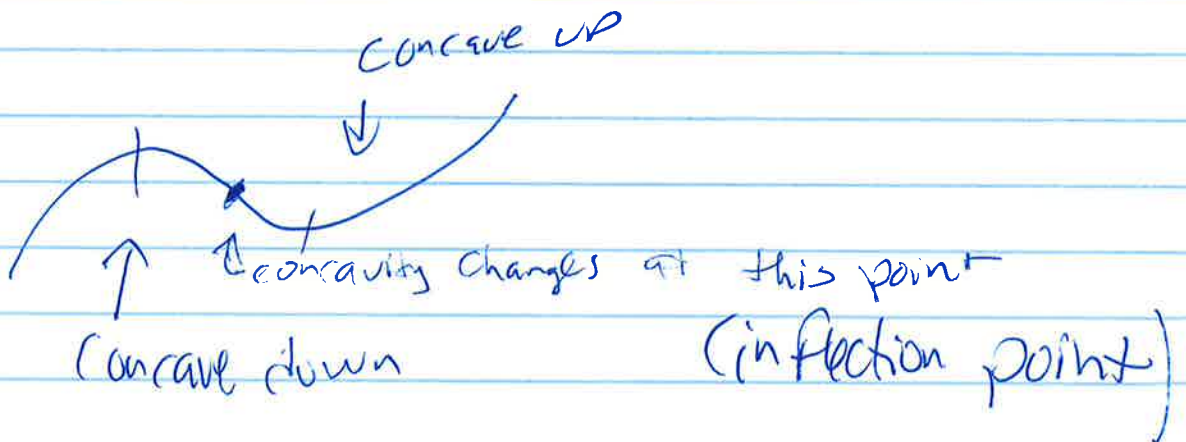 Concave up
concavity changes at this point
Concave down
(inflection point)